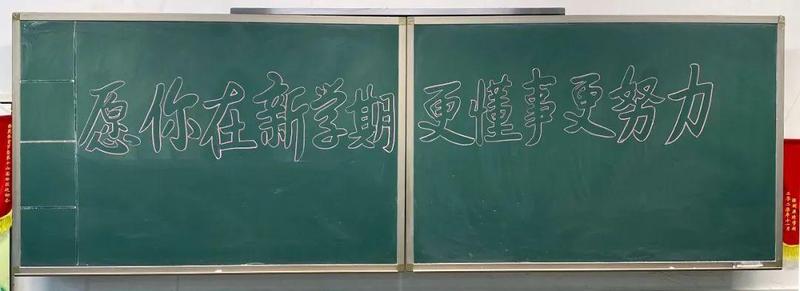 愿你在新学期更懂事更努力